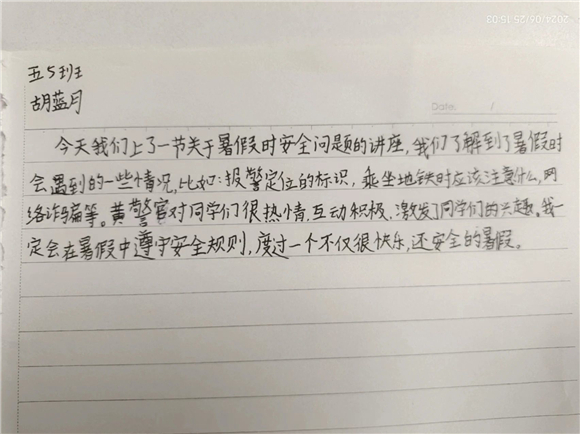 2024/06/25 15:03
五5班
胡蓝月
Date. /
今天我们上了一节关于暑假时安全问题的讲座,我们了解到了暑假时
会遇到的一些情况,比如:报警定位的标识,乘坐地铁时应该注意什么,网
络诈骗等。黄警官对同学们很热情,互动积极,激发了同学们的兴趣。我一
定会在暑假中遵守安全规则,度过一个不仅很快乐,还安全的暑假。